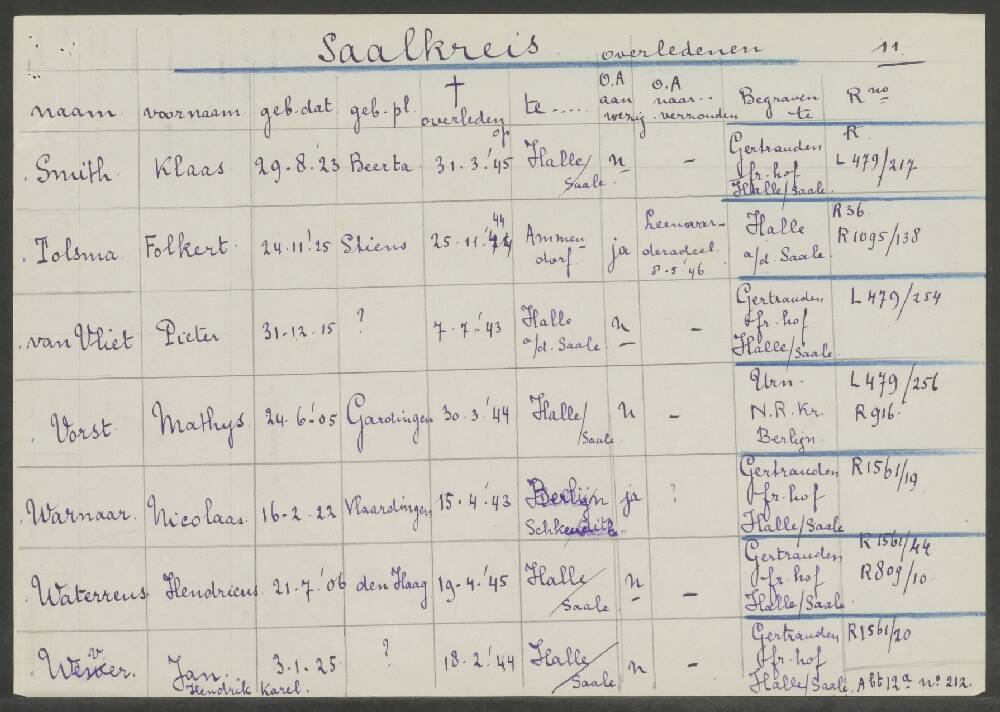 Saalkreis overledenen 11.
naam. voornaam. geb. dat. geb. pl. † overleden op te ..... O.A aan wezig. O.A naar.. verzonden Begraven te R no
Smith. Klaas 29-8-'23 Beerta. 31-3-'45 Halle/Saale. n - Gertrauden fr. hof Halle/Saale. R. L 479/217
Tolsma. Folkert. 24-11-'25 Stiens 25-11-'44 Ammendorf. ja Leeuwarderadeel. 8-5-'46 Halle a/d. Saale. R 36. R 1095/138
van Vliet Pieter 31-12-15 ? 7-7-'43 Halle a/d. Saale n - Gertrauden fr. hof Halle/Saale L 479/254
Vorst. Mathys. 24-6-'05 30-3-'44 Halle/Saale n - Urn. N.R.Kr. Berlijn. L 479/256 R 916.
Warnaar. Nicolaas. 16-2-22 Vlaardingen 15-4-'43 Berlijn ja ? Gertrauden fr. hof Halle/Saale R 1561/19
Waterreus Hendricus 21-7-'06 den Haag 19-4-'45 Halle/Saale n - Gertrauden fr. hof Halle/Saale. R 1561/44 R 809/10.
Jan. Hendrik Karel. 3-1-25. ? 18-2-'44 Halle/Saale n - Gertrauden fr. hof Halle/Saale. R 1561/20 Abt 12a no 212.